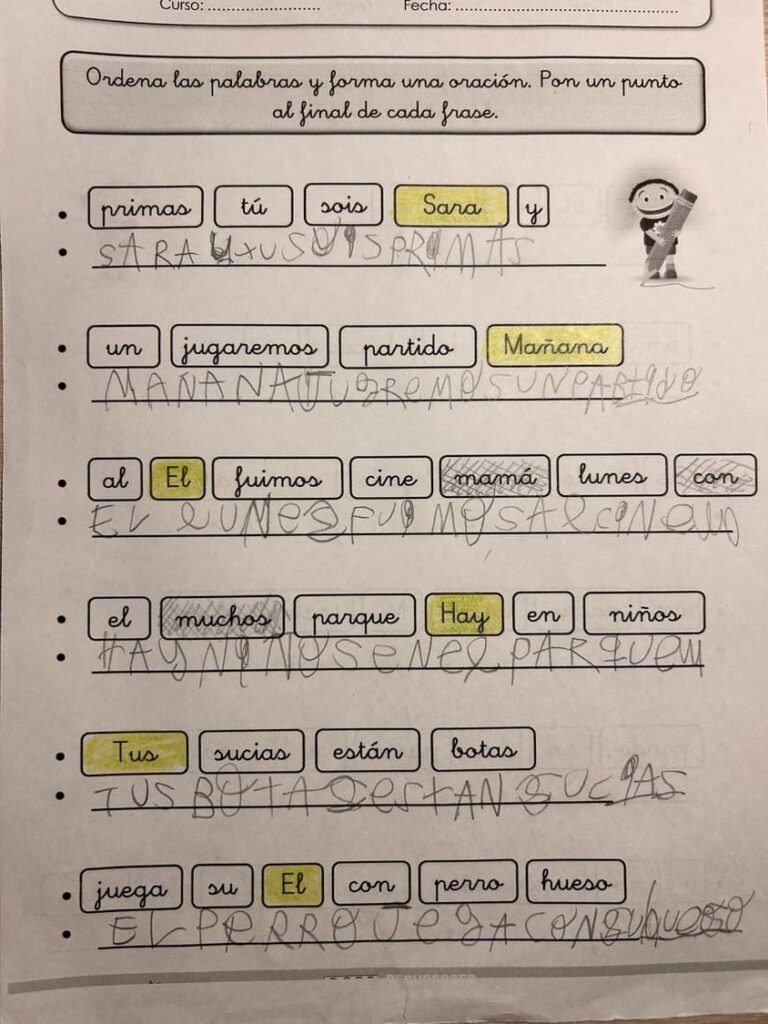 Curso: ........................ Fecha: ................................................
Ordena las palabras y forma una oración. Pon un punto
al final de cada frase.
primas tú sois Sara y
SARA Y TU SOIS PRIMAS
un jugaremos partido Mañana
MAÑANA JUGREMOS UN PARTIDO
al El fuimos cine mamá lunes con
EL LUNES FUIMOS AL CINE
el muchos parque Hay en niños
HAY NIÑOS EN EL PARQUE
Tus sucias están botas
TUS BOTAS ESTAN SUCIAS
juega su El con perro hueso
EL PERRO JEGA CON SU hueso